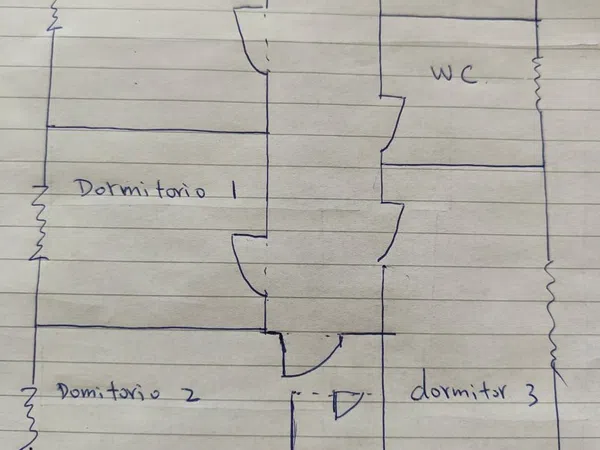 WC
Dormitorio 1
Domitorio 2
dormitor 3